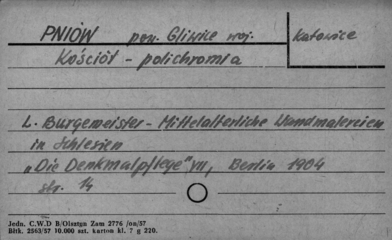 PNIÓW pow. Gliwice woj. Katowice
Kościół - polichromia
L. Burgemeister - Mittelalterliche Wandmalereien
in Schlesien
„Die Denkmalpflege" VII, Berlin 1904
str. 14
Jedn. C.W.D B/Olsztyn Zam 2776 /nn/57
Błtk. 2563/57 10.000 szt. karton kl. 7 g 220.